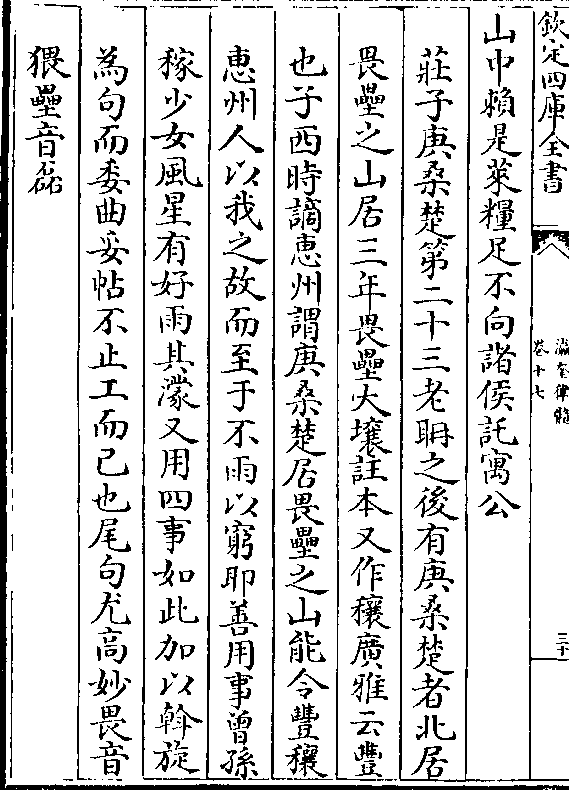 欽定四庫全書
瀛奎律髓
卷十七
三十
山中賴是萊糧足不向諸侯託寓公
莊子庚桑楚第二十三老聃之後有庚桑楚者北居
畏壘之山居三年畏壘大壤註本又作穰廣雅云豐
也子西時謫惠州謂庚桑楚居畏壘之山能令豐穰
惠州人以我之故而至于不雨以窮耶善用事曾孫
稼少女風星有好雨其濛又用四事如此加以斡旋
為句而委曲妥帖不止工而已也尾句尤高妙畏音
猥壘音磊